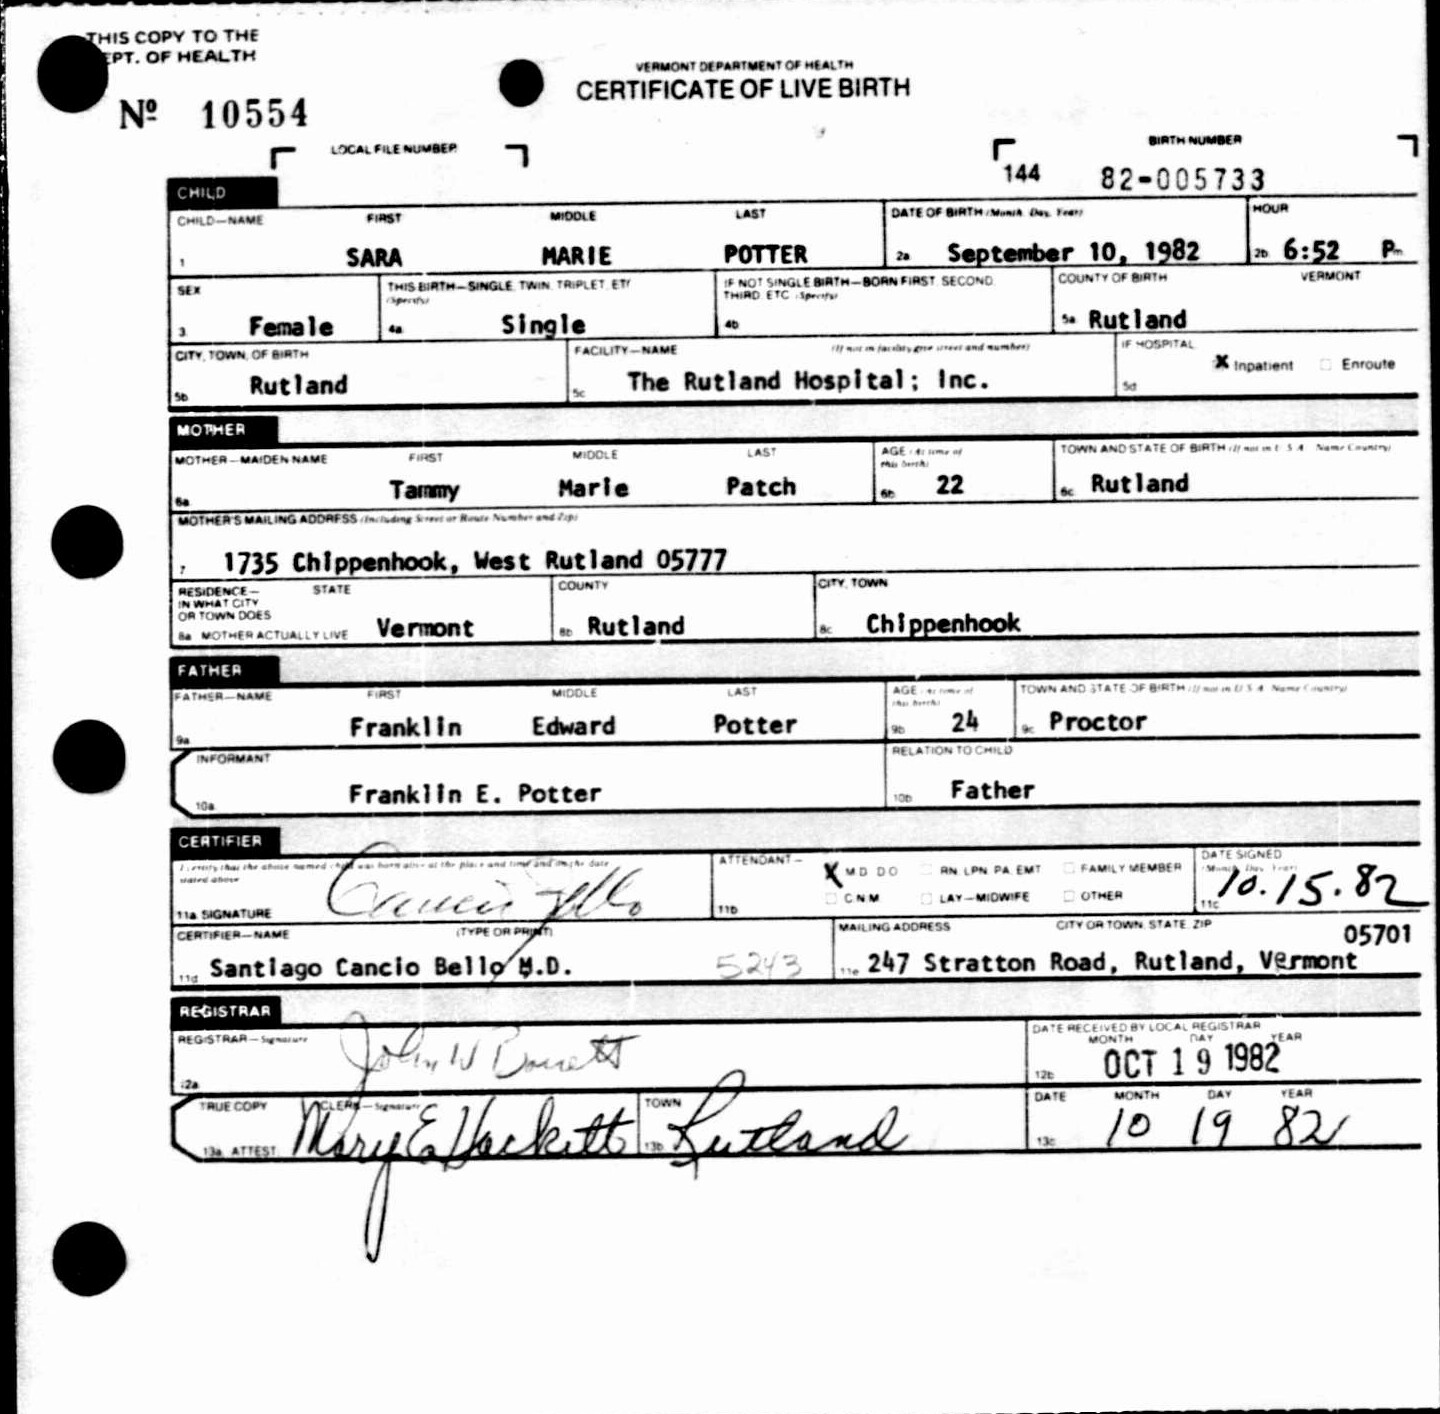 THIS COPY TO THE
EPT. OF HEALTH
Nº 10554
VERMONT DEPARTMENT OF HEALTH
CERTIFICATE OF LIVE BIRTH
LOCAL FILE NUMBER
BIRTH NUMBER
144 82-005733
CHILD
CHILD—NAME FIRST MIDDLE LAST DATE OF BIRTH (Month, Day, Year) HOUR
1 SARA MARIE POTTER 2a September 10, 1982 2b 6:52 Pm
SEX THIS BIRTH—SINGLE, TWIN, TRIPLET, ETC (Specify) IF NOT SINGLE BIRTH—BORN FIRST, SECOND, THIRD, ETC. (Specify) COUNTY OF BIRTH VERMONT
3 Female 4a Single 4b 5a Rutland
CITY, TOWN, OF BIRTH FACILITY—NAME (If not in facility give street and number) IF HOSPITAL
5b Rutland 5c The Rutland Hospital; Inc. 5d X Inpatient Enroute
MOTHER
MOTHER—MAIDEN NAME FIRST MIDDLE LAST AGE (At time of this birth) TOWN AND STATE OF BIRTH (If not in U.S.A. Name Country)
6a Tammy Marie Patch 6b 22 6c Rutland
MOTHER'S MAILING ADDRESS (Including Street or Route Number and Zip)
7 1735 Chippenhook, West Rutland 05777
RESIDENCE— STATE COUNTY CITY, TOWN
IN WHAT CITY
OR TOWN DOES
8a MOTHER ACTUALLY LIVE Vermont 8b Rutland 8c Chippenhook
FATHER
FATHER—NAME FIRST MIDDLE LAST AGE (At time of this birth) TOWN AND STATE OF BIRTH (If not in U.S.A. Name Country)
9a Franklin Edward Potter 9b 24 9c Proctor
INFORMANT RELATION TO CHILD
10a Franklin E. Potter 10b Father
CERTIFIER
I certify that the above named child was born alive at the place and time and on the date
stated above
ATTENDANT— X M.D. D.O RN, LPN, PA, EMT FAMILY MEMBER DATE SIGNED (Month, Day, Year)
11a SIGNATURE 11b C.N.M. LAY—MIDWIFE OTHER 11c 10.15.82
CERTIFIER—NAME (TYPE OR PRINT) MAILING ADDRESS CITY OR TOWN, STATE, ZIP 05701
11d Santiago Cancio Bello M.D. 5243 11e 247 Stratton Road, Rutland, Vermont
REGISTRAR
REGISTRAR—Signature DATE RECEIVED BY LOCAL REGISTRAR
MONTH DAY YEAR
12a John W Barrett 12b OCT 19 1982
TRUE COPY CLERK—Signature TOWN DATE MONTH DAY YEAR
13a ATTEST Mary E Hackett 13b Rutland 13c 10 19 82